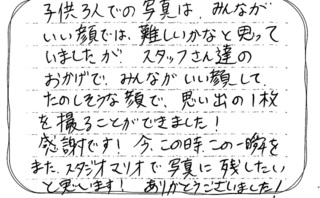 子供3人での写真は、みんなが
いい顔では、難しいかなと思って
いましたが スタッフさん達の
おかげで、みんながいい顔して
たのしそうな顔で、思い出の1枚
を撮ることができました!
感謝です! 今、この時、この一瞬を
また、スタジオマリオで写真に残したい
と思います! ありがとうございました!